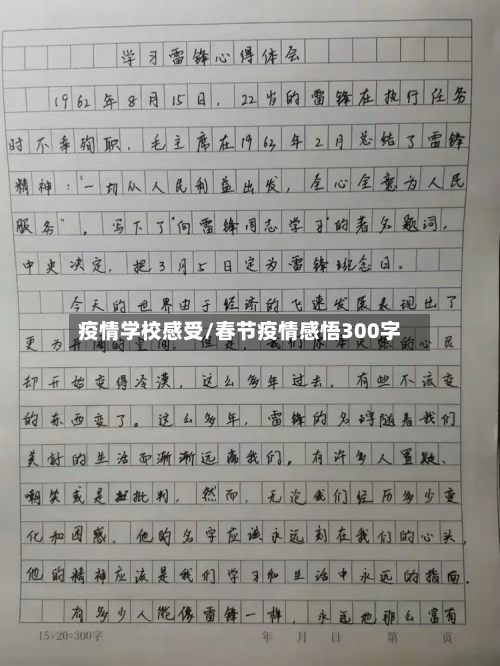 学习雷锋心得体会
1962年8月15日，22岁的雷锋在执行任务
时不幸殉职，毛主席在1963年2月总结了雷锋
精神："一切从人民利益出发，全心全意为人民
服务"。写下了"向雷锋同志学习"的著名题词，
中央决定，把3月5日定为雷锋纪念日。
今天的世界由于经济的飞速发展表现出了
疫情学校感受/春节疫情感悟300字
更为开阔的空间。但是，我们
心灵
却开始变得冷漠，这么多年过去，有些不该变
的东西变了。这么多年，雷锋的名字随着我们
美好的生活而渐渐远离我们。有许多人置疑、
嘲笑或是批判，然而，无论我们经历多少变
化和困惑，他的名字应该永远刻在我们的心头，
他的精神应该是我们学习和生活中永远的指南。
有多少人能像雷锋一样，永远地那么富有
15×20=300字 年 月 日 第 页